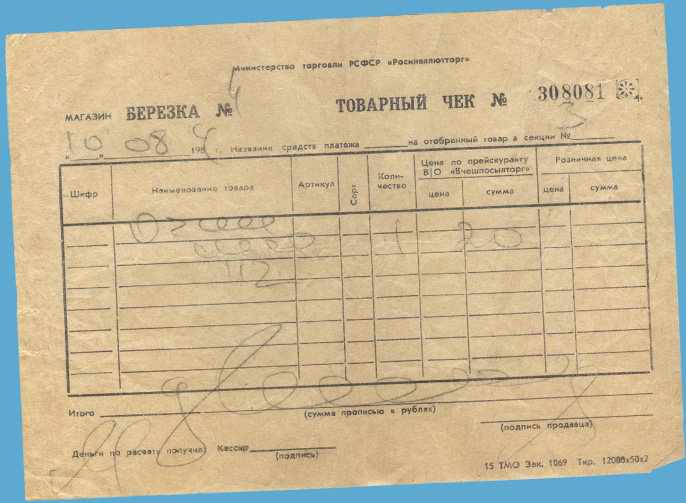 Министерство торговли РСФСР «Росинвалютторг»
МАГАЗИН БЕРЕЗКА № 4 ТОВАРНЫЙ ЧЕК № 308081
„10" 08 1984 г. Название средств платежа на отобранный товар в секции № 3
Шифр Наименование товара Артикул Сорт Коли-чество Цена по прейскуранту В|О «Внешпосылторг» Розничная цена
цена сумма цена сумма
1 20
112
Итого
(сумма прописью в рублях)
(подпись продавца)
Деньги по расчету получил: Кассир
(подпись)
15 ТМО Зак. 1069 Тир. 12000х50х2